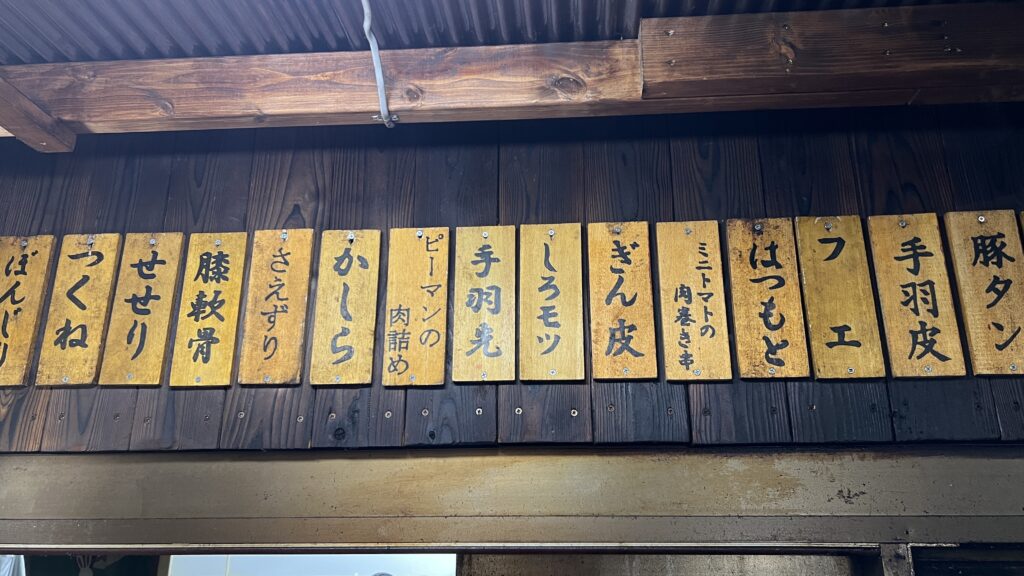 ぼんじり
つくね
せせり
膝軟骨
さえずり
かしら
ピーマンの
肉詰め
手羽先
しろモツ
ぎん皮
ミニトマトの
肉巻き串
はつもと
フエ
手羽皮
豚タン